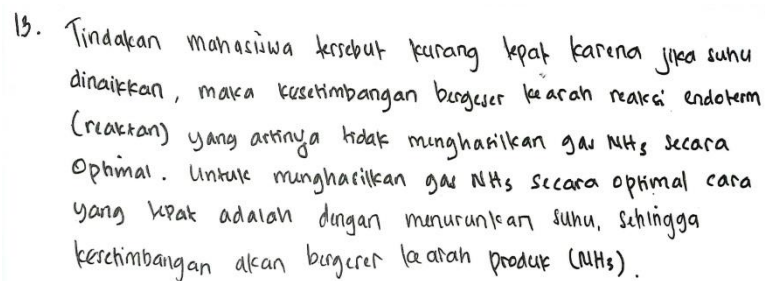 13. Tindakan mahasiswa tersebut kurang tepat karena jika suhu
dinaikkan, maka kesetimbangan bergeser ke arah reaksi endoterm
(reaktan) yang artinya tidak menghasilkan gas NH3 secara
Optimal. Untuk menghasilkan gas NH3 secara optimal cara
yang tepat adalah dengan menurunkan suhu, sehingga
kesetimbangan akan bergeser ke arah produk (NH3).